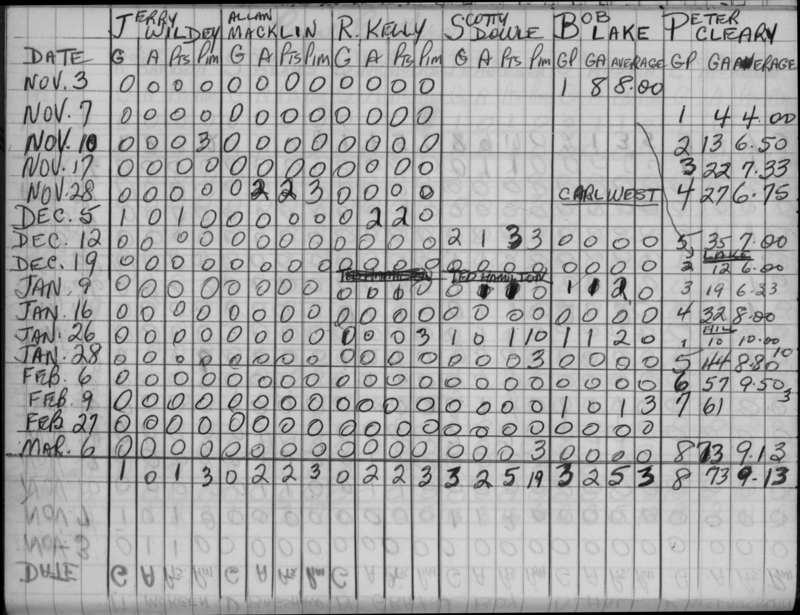 JERRY WILDEY ALLAN MACKLIN R. KELLY SCOTTY DOWLE BOB LAKE PETER CLEARY
DATE G A Pts Pim G A Pts Pim G A Pts Pim G A Pts Pim GP GA AVERAGE GP GA AVERAGE
NOV. 3 0 0 0 0 0 0 0 0 0 0 0 0 1 8 8.00
NOV. 7 0 0 0 0 0 0 0 0 0 0 0 0 1 4 4.00
NOV. 10 0 0 0 3 0 0 0 0 0 0 0 0 2 13 6.50
NOV. 17 0 0 0 0 0 0 0 0 0 0 0 0 3 22 7.33
NOV. 28 0 0 0 0 0 2 2 3 0 0 0 0 CARL WEST 4 27 6.75
DEC. 5 1 0 1 0 0 0 0 0 0 2 2 0
DEC. 12 0 0 0 0 0 0 0 0 0 0 0 0 2 1 3 3 0 0 0 0 5 35 7.00
LAKE
DEC. 19 0 0 0 0 0 0 0 0 0 0 0 0 0 0 0 0 0 0 0 0 2 12 6.00
TED HAMILTON TED HAMILTON
JAN. 9 0 0 0 0 0 0 0 0 0 0 0 0 0 1 1 0 1 1 2 0 3 19 6.33
JAN. 16 0 0 0 0 0 0 0 0 0 0 0 0 0 0 0 0 0 0 0 0 4 32 8.00
JAN. 26 0 0 0 0 0 0 0 0 0 0 0 3 1 0 1 10 1 1 2 0 1 10 10.00
JAN. 28 0 0 0 0 0 0 0 0 0 0 0 0 0 0 0 3 0 0 0 0 5 44 8.80
FEB. 6 0 0 0 0 0 0 0 0 0 0 0 0 0 0 0 0 0 0 0 0 6 57 9.50
FEB. 9 0 0 0 0 0 0 0 0 0 0 0 0 0 0 0 0 1 0 1 3 7 61
FEB. 27 0 0 0 0 0 0 0 0 0 0 0 0 0 0 0 0 0 0 0 0
MAR. 6 0 0 0 0 0 0 0 0 0 0 0 0 0 0 0 3 0 0 0 0 8 73 9.13
1 0 1 3 0 2 2 3 0 2 2 3 3 2 5 19 3 2 5 3 8 73 9.13